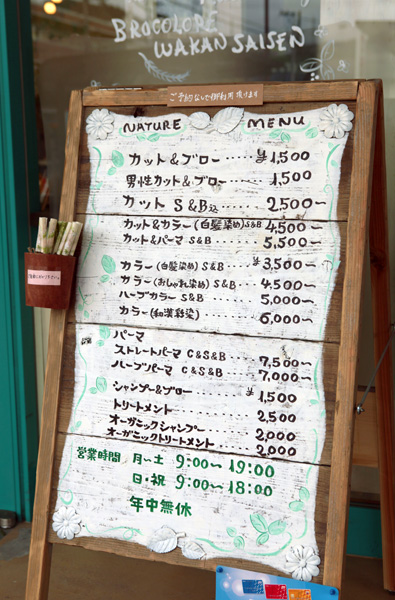 BROCOLORE
WAKAN SAISEN
ご予約なしで御利用頂けます
NATURE MENU
カット&ブロー・・・・・¥1,500
男性カット&ブロー・・・1,500
カット S&B込・・・・2,500〜
カット&カラー(白髪染め)S&B 4,500〜
カット&パーマ S&B・・・・・5,500〜
カラー(白髪染め)S&B・・・¥3,500〜
カラー(おしゃれ染め)S&B・・・4,500〜
ハーブカラー S&B・・・・・5,000〜
カラー(和漢彩染)・・・・・6,000〜
パーマ
ストレートパーマ C&S&B・・・・7,500〜
ハーブパーマ C&S&B・・・・7,000〜
シャンプー&ブロー・・・・¥1,500
トリートメント・・・・・・2,500
オーガニックシャンプー・・・・2,000
オーガニックトリートメント・・・2,000
営業時間 月〜土 9:00〜19:00
日・祝 9:00〜18:00
年中無休